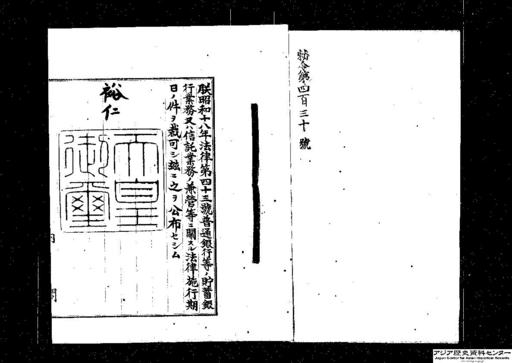 勅令第四百三十號
朕昭和十八年法律第四十三號普通銀行等ノ貯蓄銀
行業務又ハ信託業務ノ兼營等ニ關スル法律施行期
日ノ件ヲ裁可シ茲ニ之ヲ公布セシム
裕仁
天皇
御璽
アジア歴史資料センター
Japan Center for Asian Historical Records